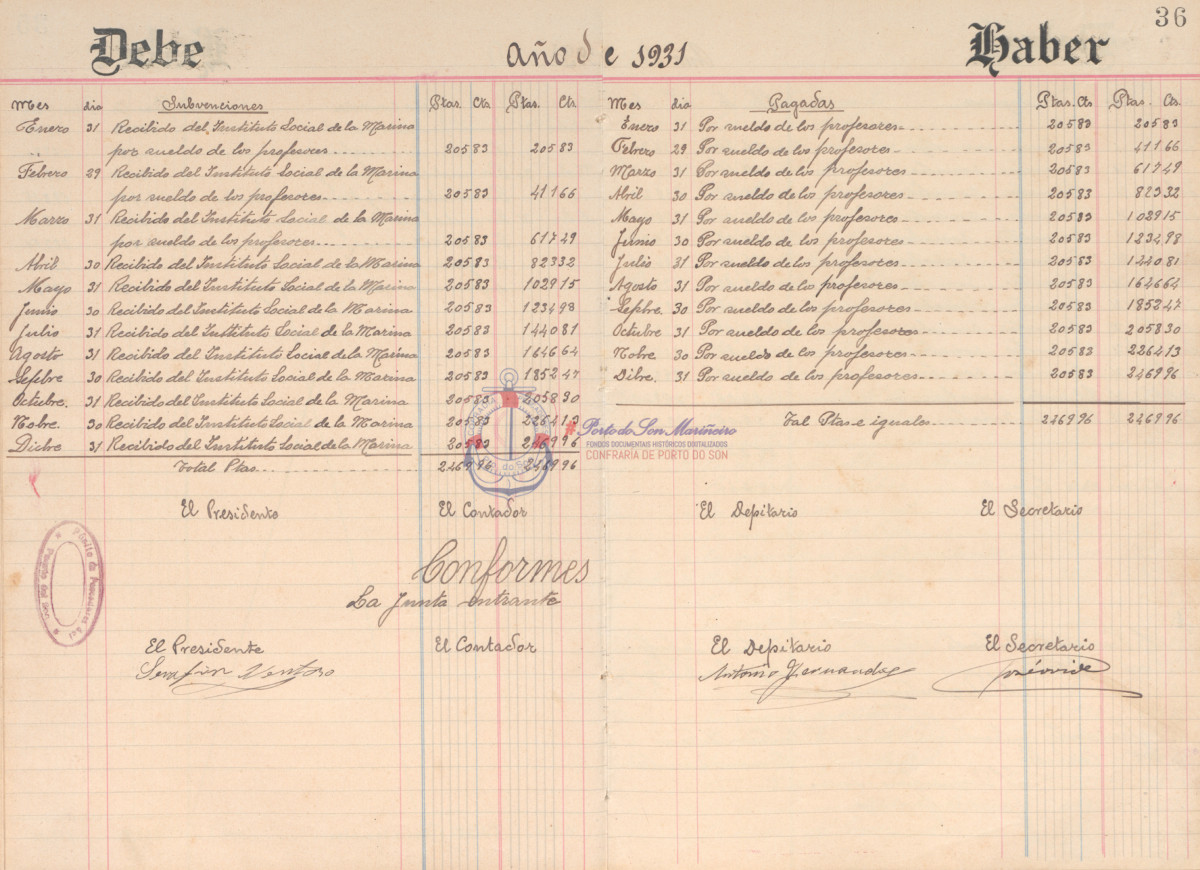 36
Debe Año de 1931 Haber
Mes dia Subvenciones Ptas. Cts. Ptas. Cts.
Enero 31 Recibido del Instituto Social de la Marina
por sueldo de los profesores 205 83 205 83
Febrero 29 Recibido del Instituto Social de la Marina
por sueldo de los profesores 205 83 411 66
Marzo 31 Recibido del Instituto Social de la Marina
por sueldo de los profesores 205 83 617 49
Abril 30 Recibido del Instituto Social de la Marina 205 83 823 32
Mayo 31 Recibido del Instituto Social de la Marina 205 83 1029 15
Junio 30 Recibido del Instituto Social de la Marina 205 83 1234 98
Julio 31 Recibido del Instituto Social de la Marina 205 83 1440 81
Agosto 31 Recibido del Instituto Social de la Marina 205 83 1646 64
Sepbre 30 Recibido del Instituto Social de la Marina 205 83 1852 47
Octubre. 31 Recibido del Instituto Social de la Marina 205 83 2058 30
Nobre. 30 Recibido del Instituto Social de la Marina 205 83 2264 13
Dicbre 31 Recibido del Instituto Social de la Marina 205 83 2469 96
Total Ptas. 2469 96 2469 96
Mes dia Pagadas Ptas. Cts Ptas. Cts.
Enero 31 Por sueldo de los profesores 205 83 205 83
Febrero 29 Por sueldo de los profesores 205 83 411 66
Marzo 31 Por sueldo de los profesores 205 83 617 49
Abril 30 Por sueldo de los profesores 205 83 823 32
Mayo 31 Por sueldo de los profesores 205 83 1029 15
Junio 30 Por sueldo de los profesores 205 83 1234 98
Julio 31 Por sueldo de los profesores 205 83 1440 81
Agosto 31 Por sueldo de los profesores 205 83 1646 64
Sepbre. 30 Por sueldo de los profesores 205 83 1852 47
Octubre 31 Por sueldo de los profesores 205 83 2058 30
Nobre 30 Por sueldo de los profesores 205 83 2264 13
Dibre. 31 Por sueldo de los profesores 205 83 2469 96
Tal Ptas e iguales 2469 96 2469 96
Porto do Son Mariñeiro
FONDOS DOCUMENTAIS HISTÓRICOS DIXITALIZADOS
CONFRARÍA DE PORTO DO SON
El Presidente El Contador El Depitario El Secretario
Conformes
La Junta entrante
El Presidente El Contador El Depitario El Secretario
Serafin Ventoso Antonio Fernandez
Pósito de Pescadores del